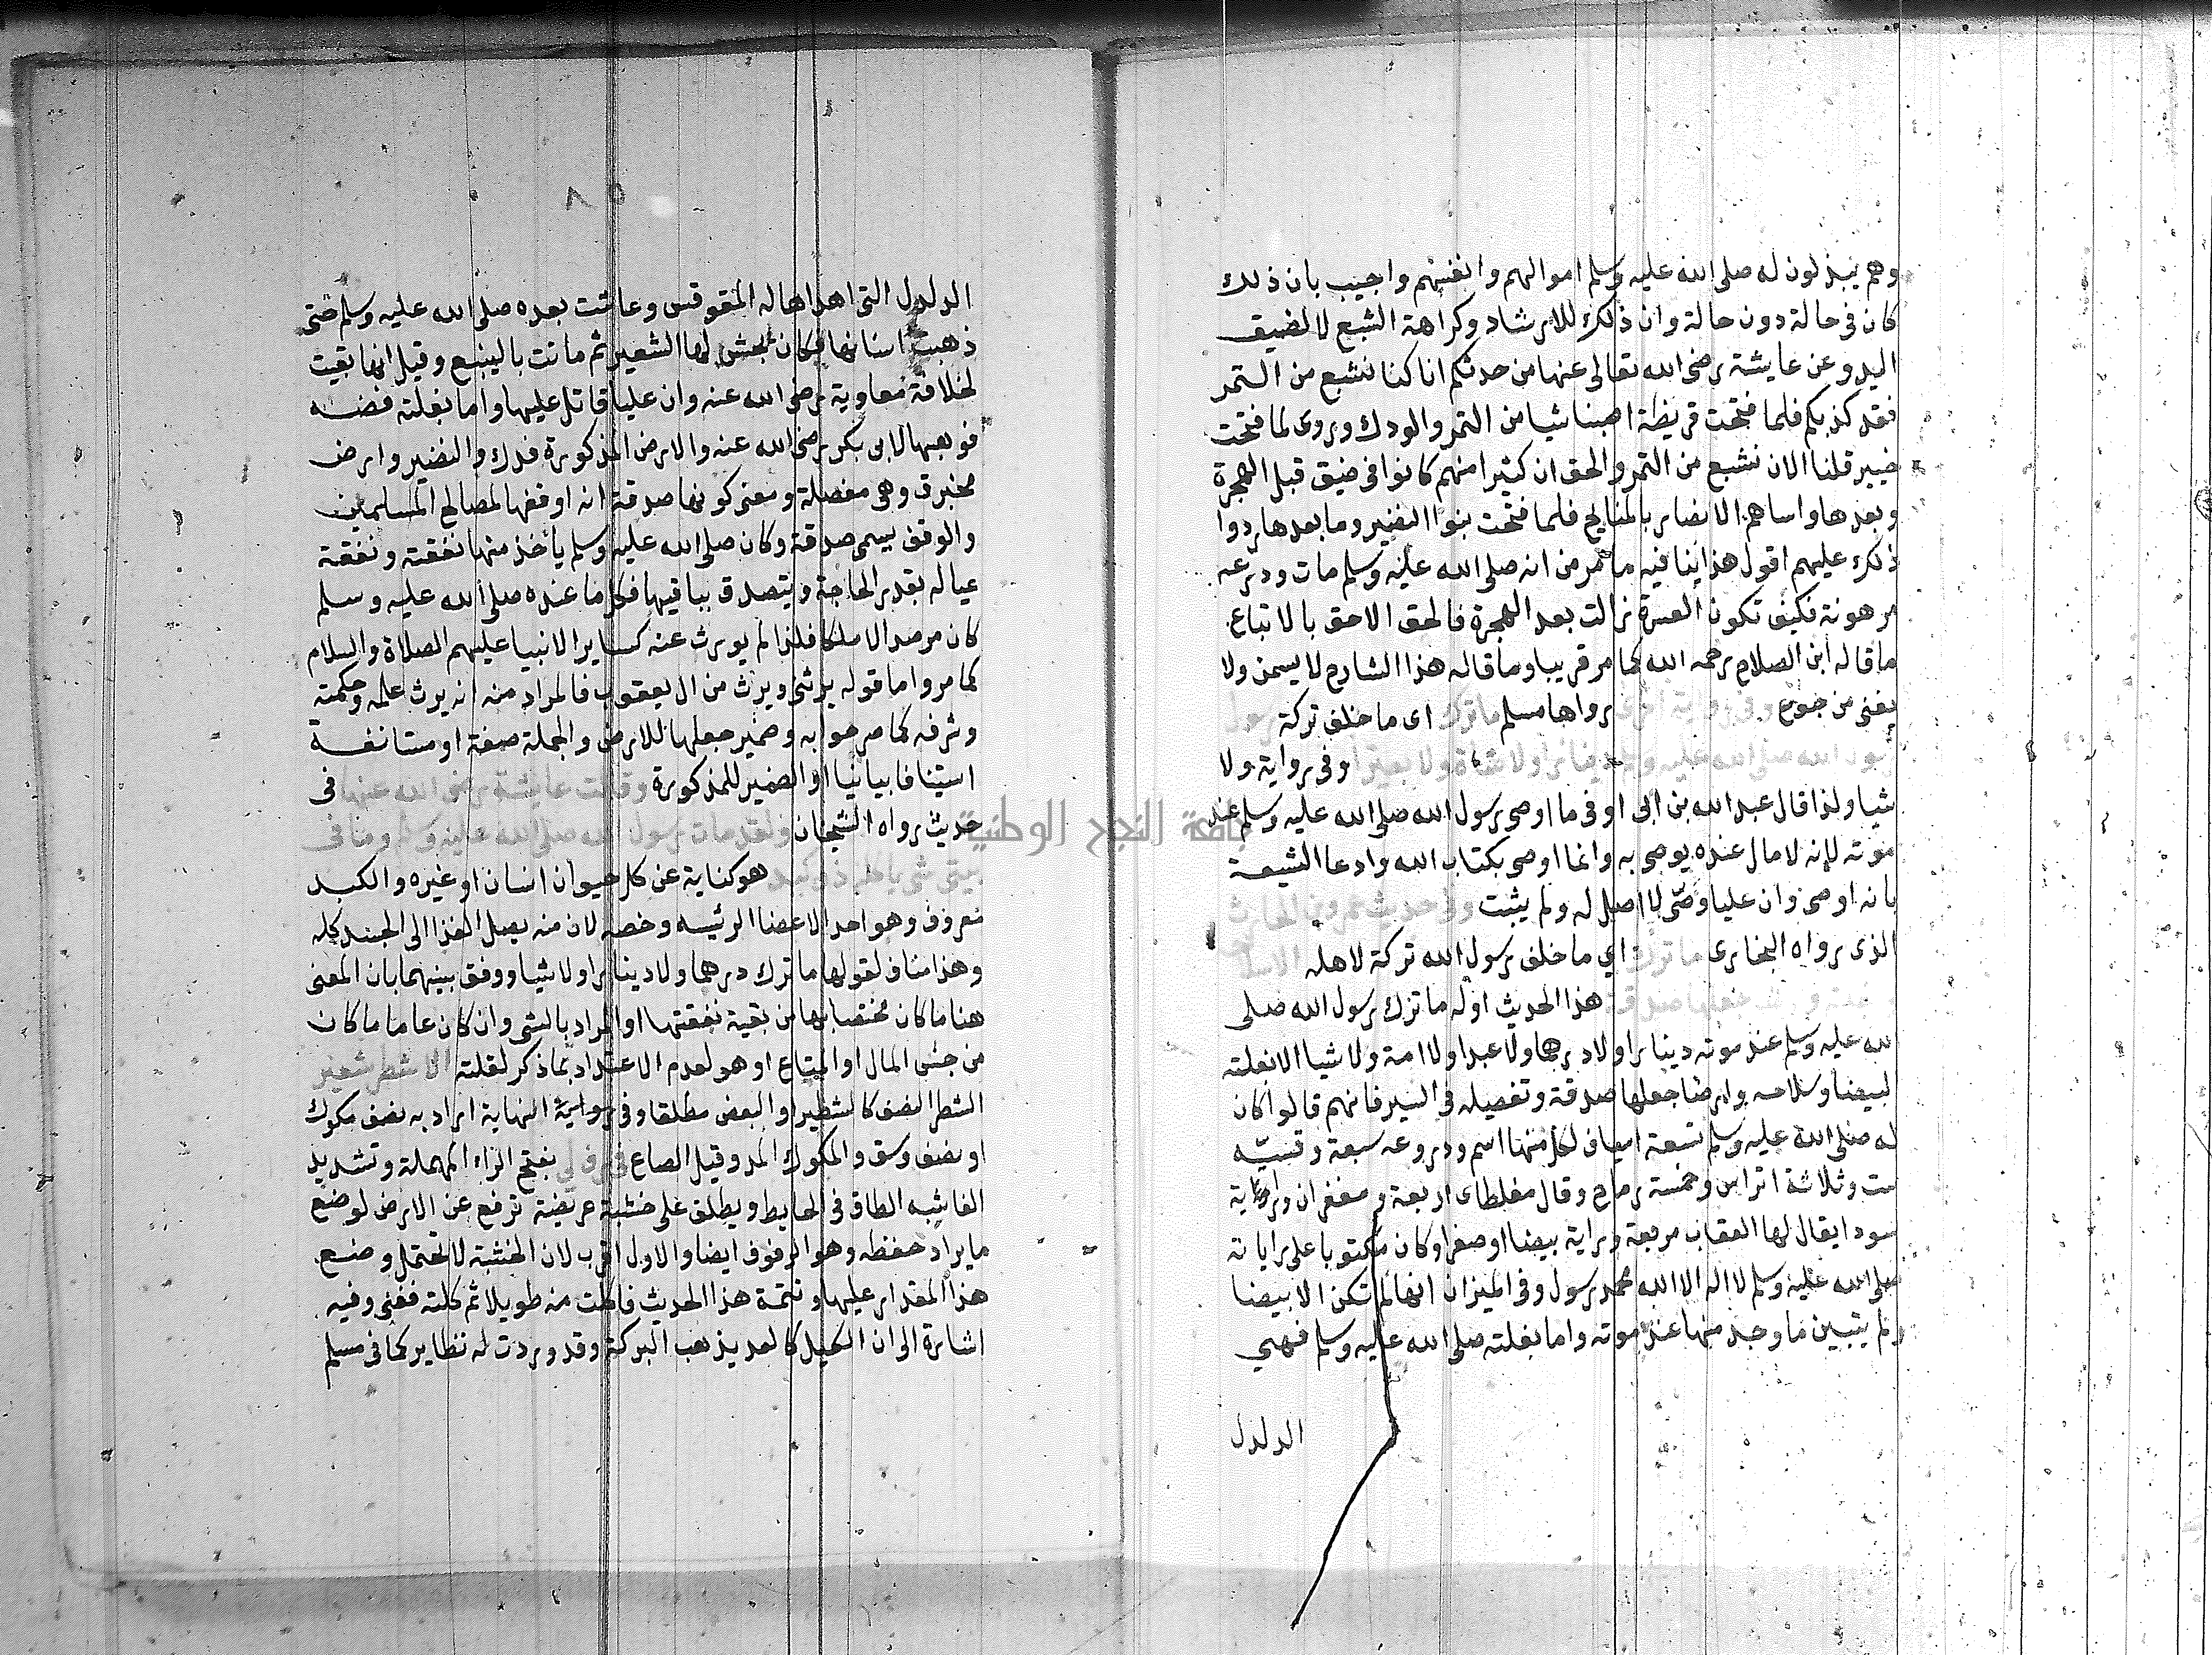 وهم يبذلون له صلى الله عليه وسلم اموالهم وانفسهم واجيب بان ذلك
كان فى حالة دون حالة وان ذلك للارشاد وكراهة الشبع لا لضيق
اليد وعن عايشة رضى الله تعالى عنها من حدثكم انا كنا نشبع من التمر
فقد كذبكم فلما فتحت قريظة اصبنا شيا من التمر والودك وروى لما فتحت
خيبر قلنا الان نشبع من التمر والحق ان كثيرا منهم كانوا فى ضيق قبل الهجرة
وبعدها واساهم الانصار بالمنايح فلما فتحت بنوا النضير وما بعدها ردوا
ذلك عليهم اقول هذا ينافيه ما مر من انه صلى الله عليه وسلم مات ودرعه
مرهونة فكيف تكون العسرة زالت بعد الهجرة فالحق الاحق بالاتباع
ما قاله ابن الصلاح رحمه الله كما مر قريبا وما قاله هذا الشارح لا يسمن ولا
يغنى من جوع وفى رواية اخرى رواها مسلم ما ترك اى ما خلف تركة رسول
رسول الله صلى الله عليه وسلم دينارا ولا شاة ولا بعيرا وفى رواية ولا
شيا ولذا قال عبد الله بن ابى اوفى ما اوصى رسول الله صلى الله عليه وسلم عند
موته لانه لا مال عنده يوصى به وانما اوصى بكتاب الله وادعا الشيعة
بانه اوصى وان عليا وصى لا اصل له ولم يثبت وفى حديث عمرو بن الحارث
الذى رواه البخارى ما ترك اي ما خلف رسول الله تركة لاهله الا سلاحه
وبغلته وارضا جعلها صدقة هذا الحديث اوله ما ترك رسول الله صلى
الله عليه وسلم عند موته دينارا ولا درهما ولا عبدا ولا امة ولا شيا الا بغلته
البيضا وسلاحه وارضا جعلها صدقة وتفصيله فى السير فانهم قالوا كان
له صلى الله عليه وسلم تسعة اسياف لكل منها اسم ودروعه سبعة وقسيه
ست وثلاثة اتراس وخمسة رماح وقال مغلطاى اربعة ومغفران وراية
سودا يقال لها العقاب مربعة وراية بيضا او صفرا وكان مكتوبا على راياته
صلى الله عليه وسلم لا اله الا الله محمد رسول وفى الميزان انها لم تكن الا بيضا
ولم يتبين ما وجد منها عند موته واما بغلته صلى الله عليه وسلم فهي
الدلدل
٨٥
الدلدل التى اهداها له المقوقس وعاشت بعده صلى الله عليه وسلم حتى
ذهبت اسنانها فكان يجش لها الشعير ثم ماتت بالينبع وقيل انها بقيت
لخلافة معاوية رضى الله عنه وان عليا قاتل عليها واما بغلته فضه
فوهبها لابى بكر رضى الله عنه والارض المذكورة فدك والنضير وارض
مخيرق وهى مفصلة ومعنى كونها صدقة انه اوقفها لمصالح المسلمين
والوقف يسمى صدقة وكان صلى الله عليه وسلم يأخذ منها نفقته ونفقة
عياله بقدر الحاجة ويتصدق بباقيها فكل ما عنده صلى الله عليه وسلم
كان مرصدا لا ملكا فلذا لم يورث عنه كساير الانبيا عليهم الصلاة والسلام
كما مر واما قوله يرثنى ويرث من ال يعقوب فالمراد منه انه يرث علمه وحكمته
وشرفه كما مر جوابه وضمير جعلها للارض والجملة صفة او مستانفة
استينافا بيانيا او الضمير للمذكورة وقالت عايشة رضى الله عنها فى
حديث رواه الشيخان ولقد مات رسول الله صلى الله عليه وسلم وما فى
بيتى شى ياكله ذو كبد هو كناية عن كل حيوان انسان او غيره والكبد
معروف وهو احد الاعضا الرئيسه وخصه لان منه يصل الغذا الى الجسد كله
وهذا مناف لقولها ما ترك درهما ولا دينارا ولا شيا ووفق بينهما بان المعنى
هنا ما كان مختصا بها من بقية نفقتها او المراد بالشى وان كان عاما ما كان
من جنس المال او المتاع او هو لعدم الاعتداد بما ذكر لقلته الا شطر شعير
الشطر النصف كالشطير او البعض مطلقا وفى رواية النهاية اراد به نصف مكوك
او نصف وسق والمكوك المد وقيل الصاع فى رف لى بفتح الراء المهملة وتشديد
الفا شبه الطاق فى الحايط ويطلق على خشبة عريضة ترفع عن الارض لوضع
ما يراد حفظه وهو الرفوف ايضا والاول اقرب لان الخشبة لا تحتمل وضع
هذا المقدار عليها وتتمة هذا الحديث فاكلت منه طويلا ثم كلته ففنى وفيه
اشارة الى ان الكيل كالعد يذهب البركة وقد وردت له نظاير كما فى مسلم
جامعة النجاح الوطنية